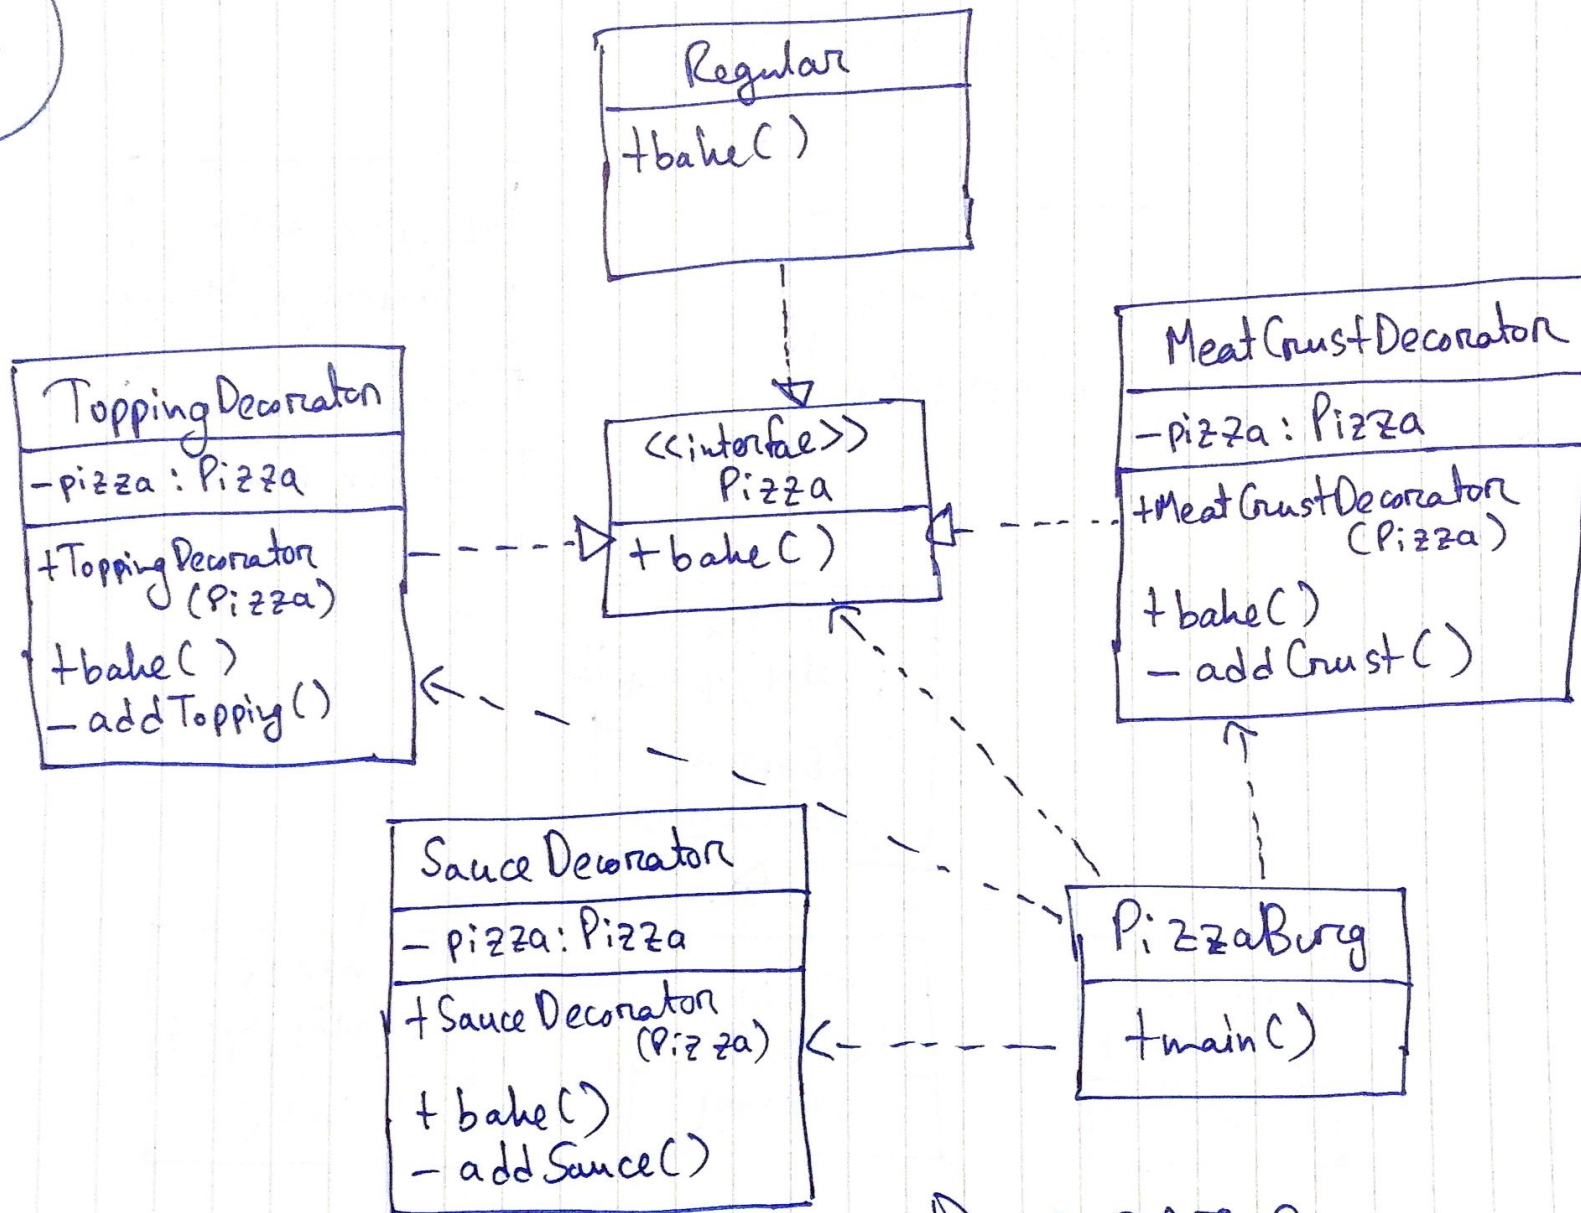 Regular
+bake()
ToppingDecorator
-pizza : Pizza
+ToppingDecorator
(Pizza)
+bake()
- addTopping()
<<interfae>>
Pizza
+ bake()
MeatCrustDecorator
-pizza : Pizza
+MeatCrustDecorator
(Pizza)
+bake()
- addCrust()
SauceDecorator
- pizza: Pizza
+SauceDecorator
(Pizza)
+ bake()
- addSauce()
PizzaBurg
+main()